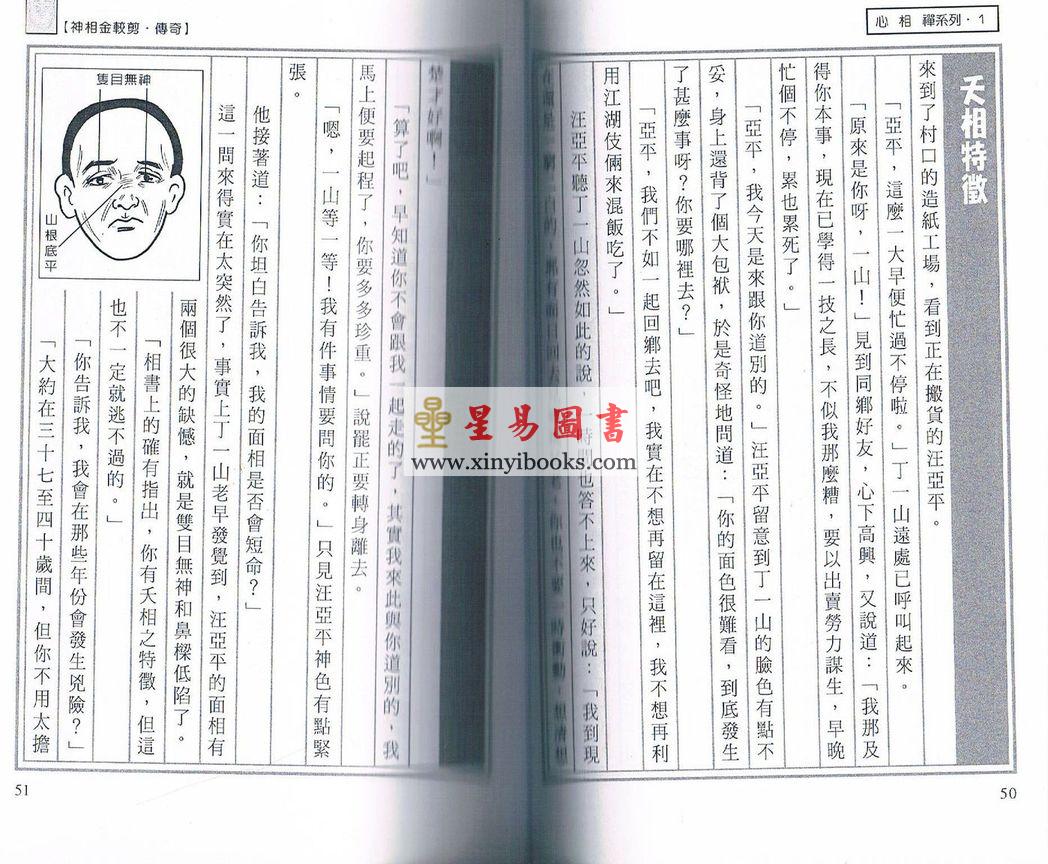 心相禪系列·1
夭相特徵
來到了村口的造紙工場,看到正在搬貨的汪亞平。
「亞平,這麼一大早便忙過不停啦。」丁一山遠處已呼叫起來。
「原來是你呀,一山!」見到同鄉好友,心下高興,又說道:「我那及
得你本事,現在已學得一技之長,不似我那麼糟,要以出賣勞力謀生,早晚
忙個不停,累也累死了。」
「亞平,我今天是來跟你道別的。」汪亞平留意到丁一山的臉色有點不
妥,身上還背了個大包袱,於是奇怪地問道:「你的面色很難看,到底發生
了甚麼事呀?你要哪裡去?」
「亞平,我們不如一起回鄉去吧,我實在不想再留在這裡,我不想再利
用江湖伎倆來混飯吃了。」
汪亞平聽丁一山忽然如此的說,一時間也答不上來,只好說:「我到現
在還是一窮二
的,
有面目回去
你也不要一時衝動,想清想
50
【神相金較剪·傳奇】
楚才好啊!」
「算了吧,早知道你不會跟我一起走的了,其實我來此與你道別的,我
馬上便要起程了,你要多多珍重。」說罷正要轉身離去。
「嗯,一山等一等!我有件事情要問你的。」只見汪亞平神色有點緊
張。
他接著道:「你坦白告訴我,我的面相是否會短命?」
這一問來得實在太突然了,事實上丁一山老早發覺到,汪亞平的面相有
兩個很大的缺憾,就是雙目無神和鼻樑低陷了。
「相書上的確有指出,你有夭相之特徵,但這
也不一定就逃不過的。」
「你告訴我,我會在那些年份會發生兇險?」
「大約在三十七至四十歲間,但你不用太擔
隻目無神
山根底平
51
星易圖書
www.xinyibooks.com